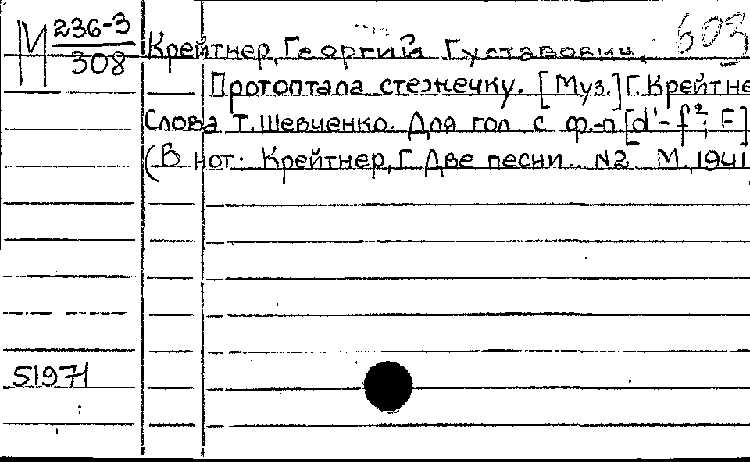 М 236-3
308
603
Крейтнер, Георгий Густавович.
Протоптала стежечку. [Муз.] Г. Крейтне
Слова Т. Шевченко. Для гол. с ф-п [d¹-f²; F]
(В нот.: Крейтнер, Г. Две песни. №2. М., 1941
51971